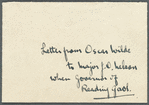 Letter from Oscar Wilde
to Major J.O. Nelson
when Governor of
Reading Gaol.